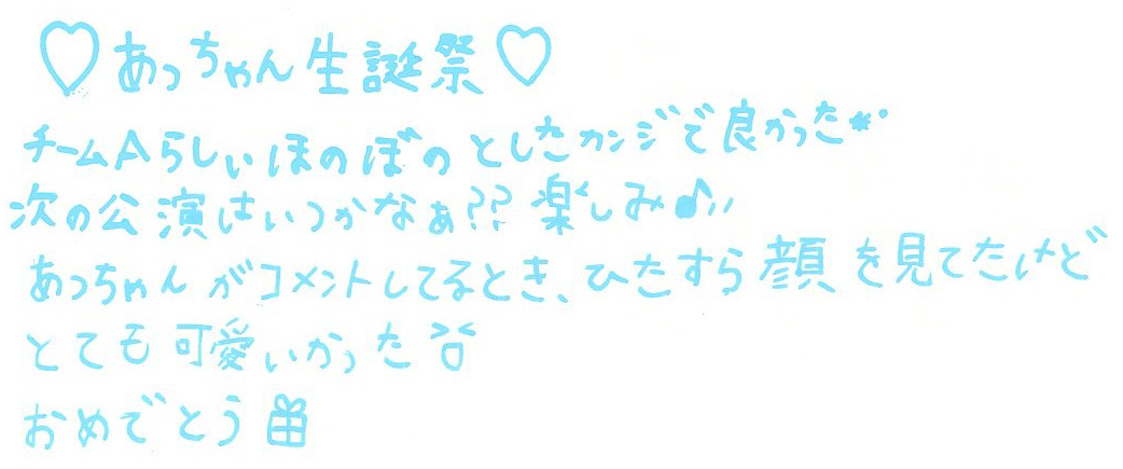 ♡あっちゃん生誕祭♡
チームAらしいほのぼのとしたカンジで良かった*°
次の公演はいつかなぁ??楽しみ♪
あっちゃんがコメントしてるとき、ひたすら顔を見てたけど
とても可愛いかった
おめでとう